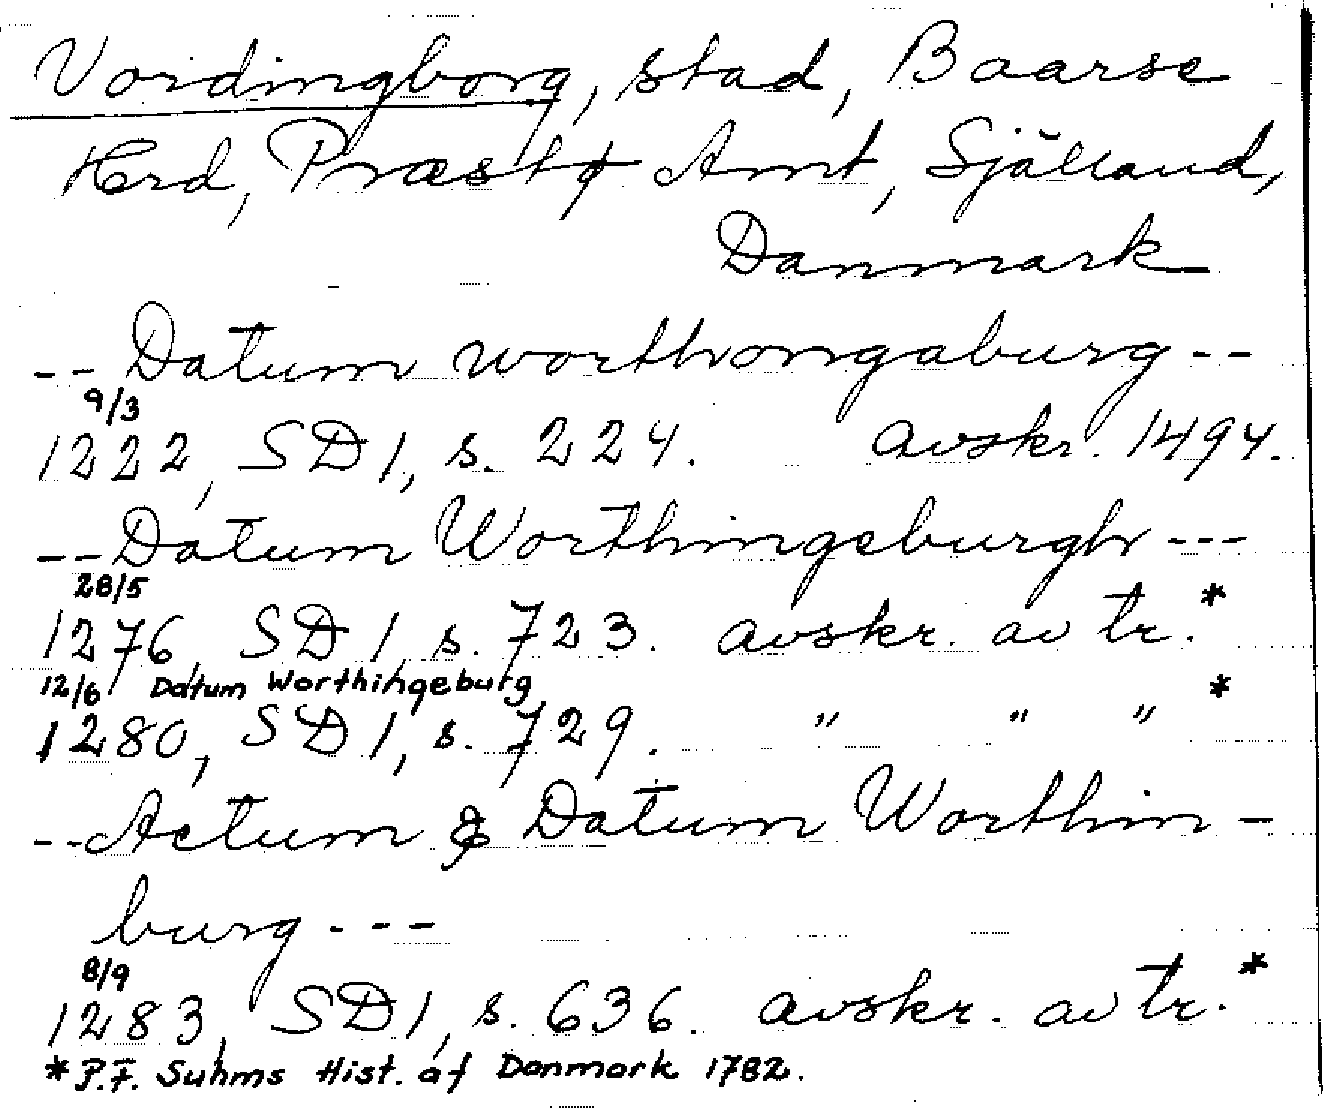 Vordingborg, stad, Baarse
Herd, Præstø Amt, Själland,
Danmark
-- Datum worthongaburg --
9/3
1222, SD 1, s. 224. avskr. 1494.
-- Datum Worthingeburgh ---
28/5
1276, SD 1, s. 723. avskr. av tr.*
12/6 Datum Worthingeburg
1280, SD 1, s. 729. " " " *
-- Actum & Datum Worthin-
burg ---
8/9
1283, SD 1, s. 636. avskr. av tr.*
* P.F. Suhms Hist. af Danmark 1782.